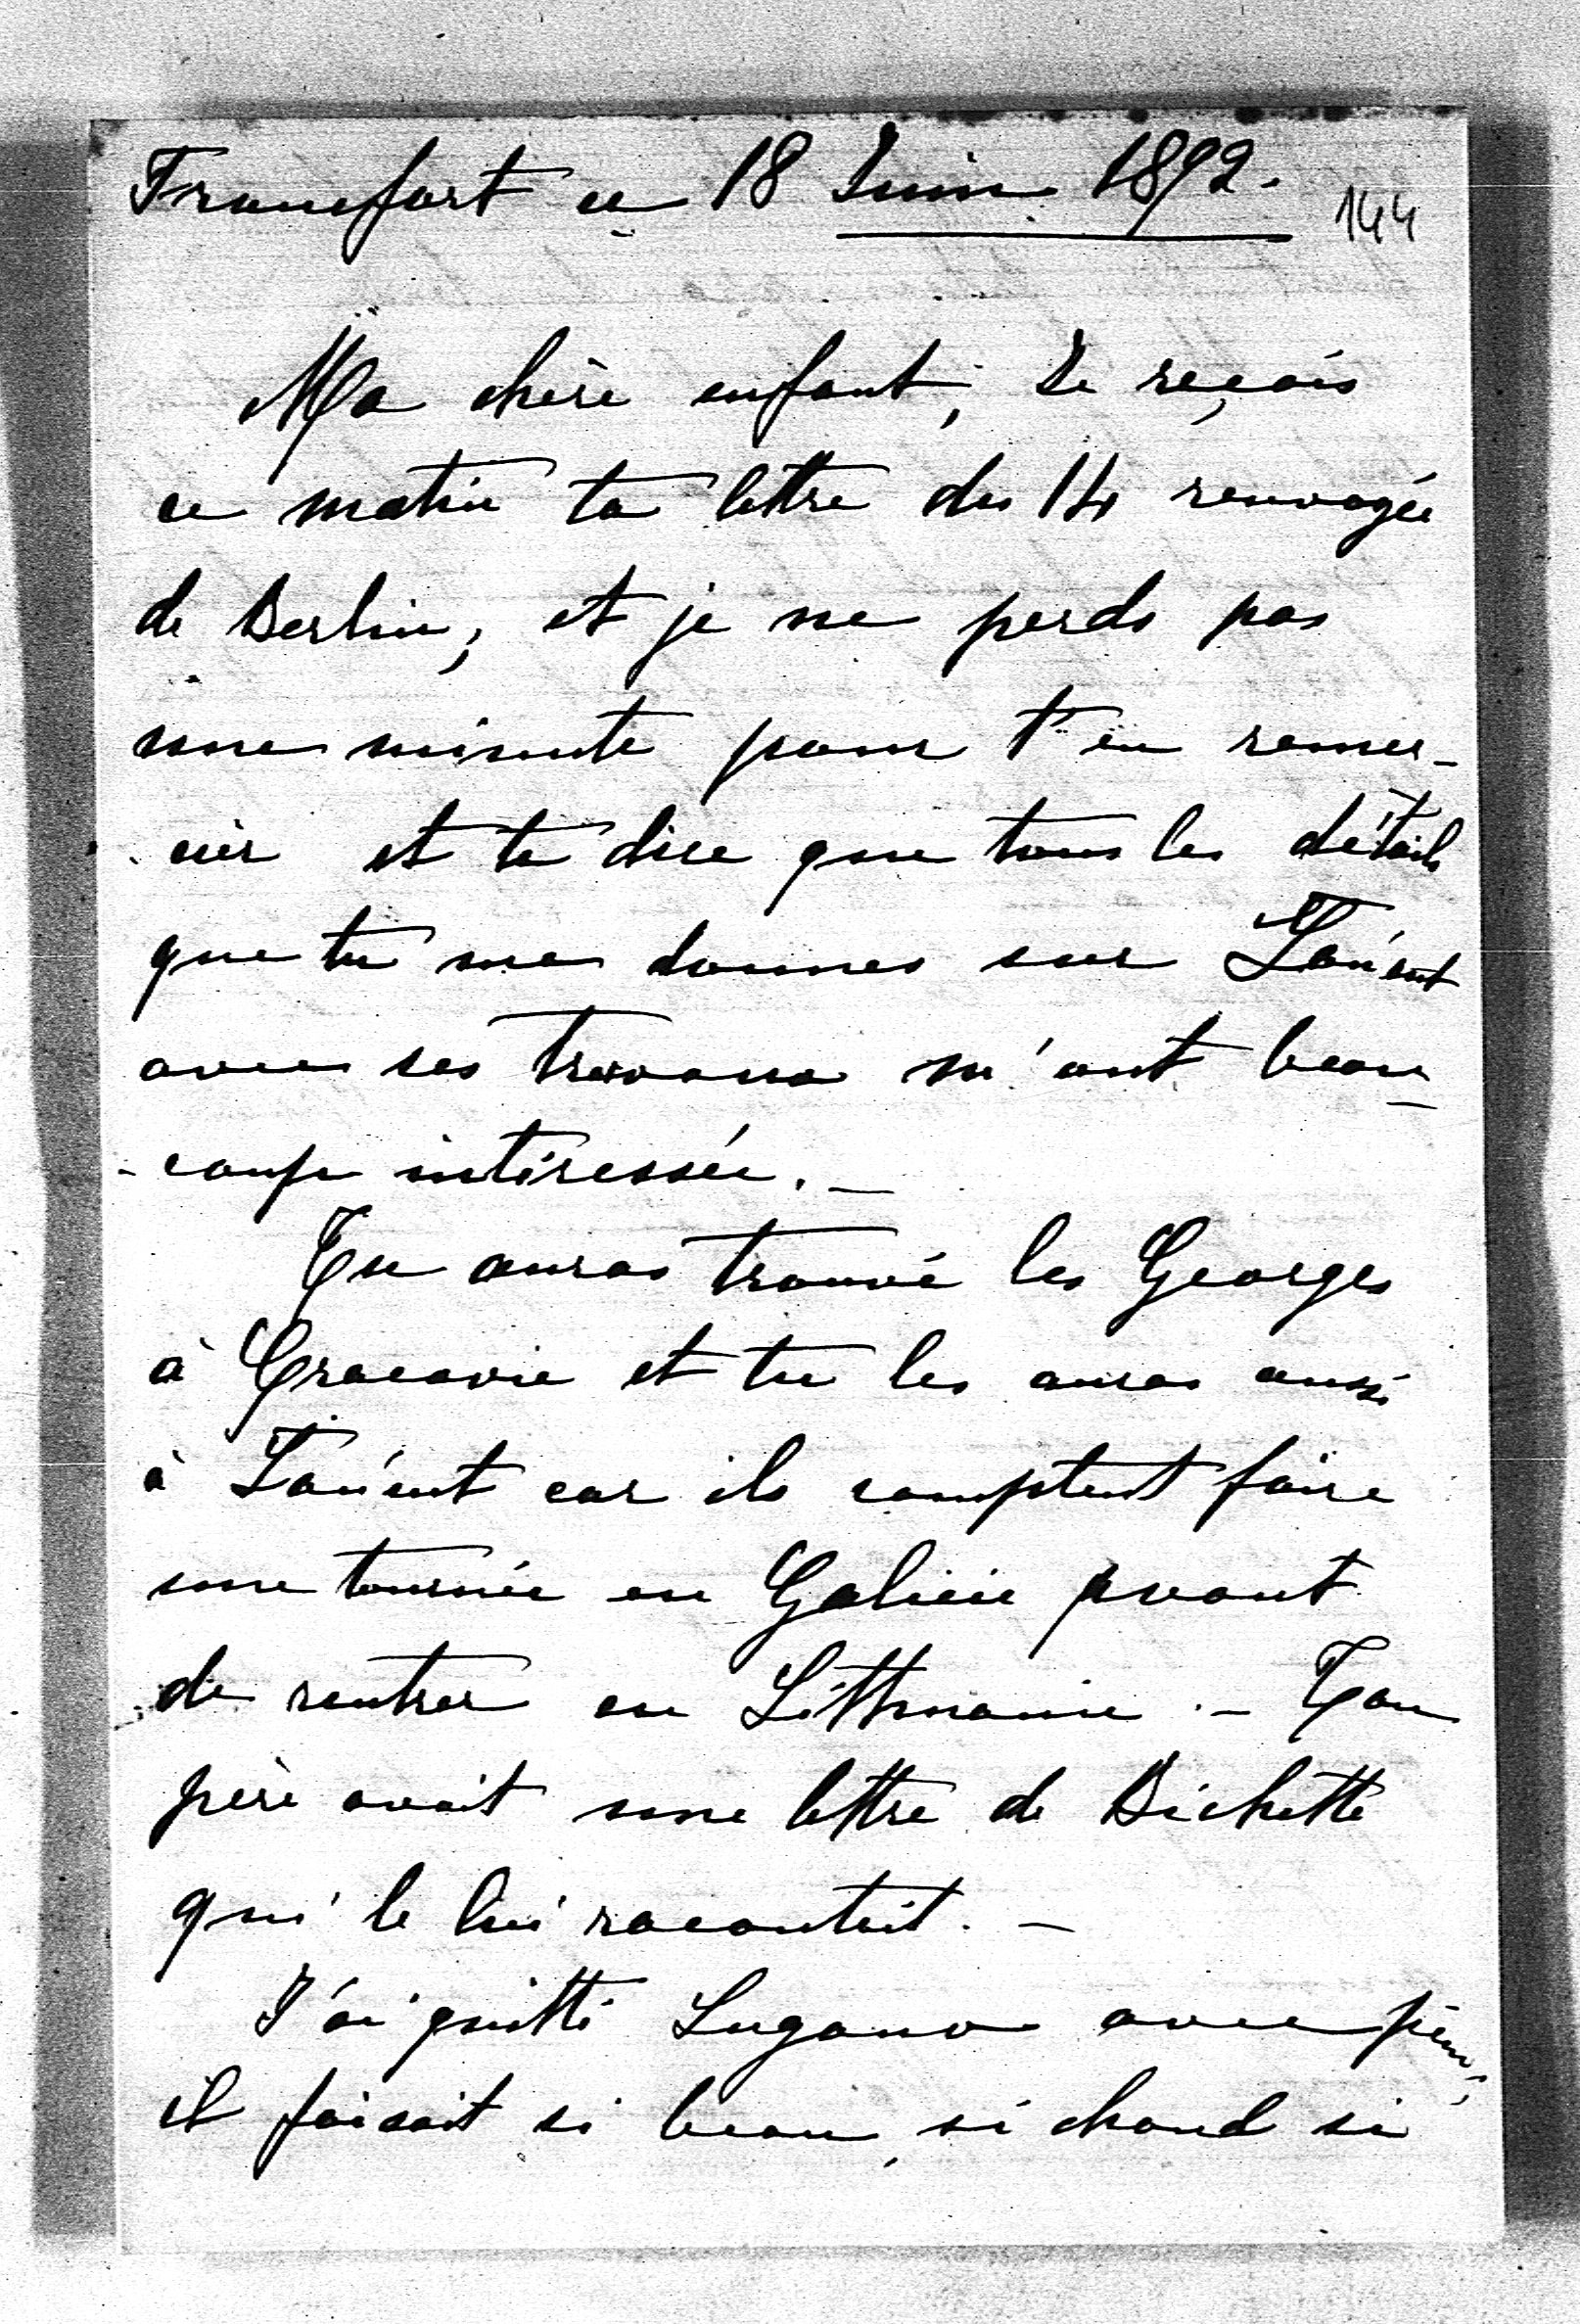 Francfort ce 18 Juin 1892.
144
Ma chère enfant, Je reçois
ce matin ta lettre du 14 renvoyée
de Berlin, et je ne perds pas
une minute pour t'en remer-
cier et te dire que tous les détails
que tu me donnes sur Łańcut
avec ses travaux m'ont beau-
-coup intéressée. _
Tu auras trouvé les Georges
à Cracovie et tu les auras aussi
à Łańcut car ils comptent faire
une tournée en Galicie avant
de rentrer en Litthuanie. – Ton
père avait une lettre de Bichette
qui le lui racontait. –
J'ai quitté Lugano avec peine,
il faisait si beau, si chaud si